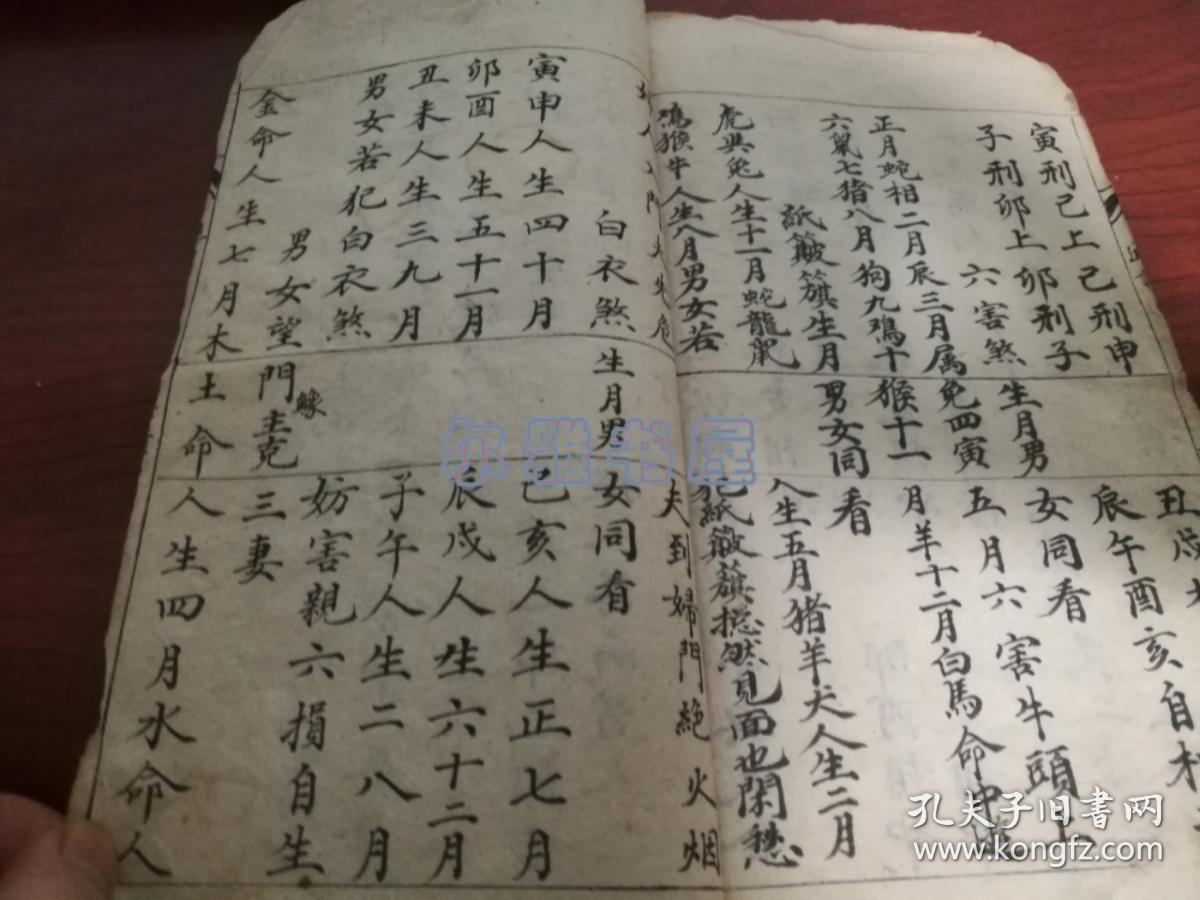 寅刑己上己刑申丑戌
子刑卯上卯刑子辰午酉亥自相
六害煞生月男女同看
正月蛇相二月辰三月属兔四寅五月六害牛頭上
六鼠七猪八月狗九鸡十猴十一月羊十二月白馬命中
紙簸籏生月男女同看
虎與兔人生十一月蛇龍鼠人生五月猪羊犬人生二月
鸡猴牛人生八月男女若犯紙簸籏揔然見面也閑愁
夫到婦門絶火烟
白衣煞生月男女同看
寅申人生四十月己亥人生正七月
卯酉人生五十一月辰戌人生六十二月
丑未人生三九月子午人生二八月
男女若犯白衣煞妨害親六損自生
男女望門鰥主克三妻
金命人生七月木土命人生四月水命人
尔雅书屋
孔夫子旧书网
www.kongfz.com